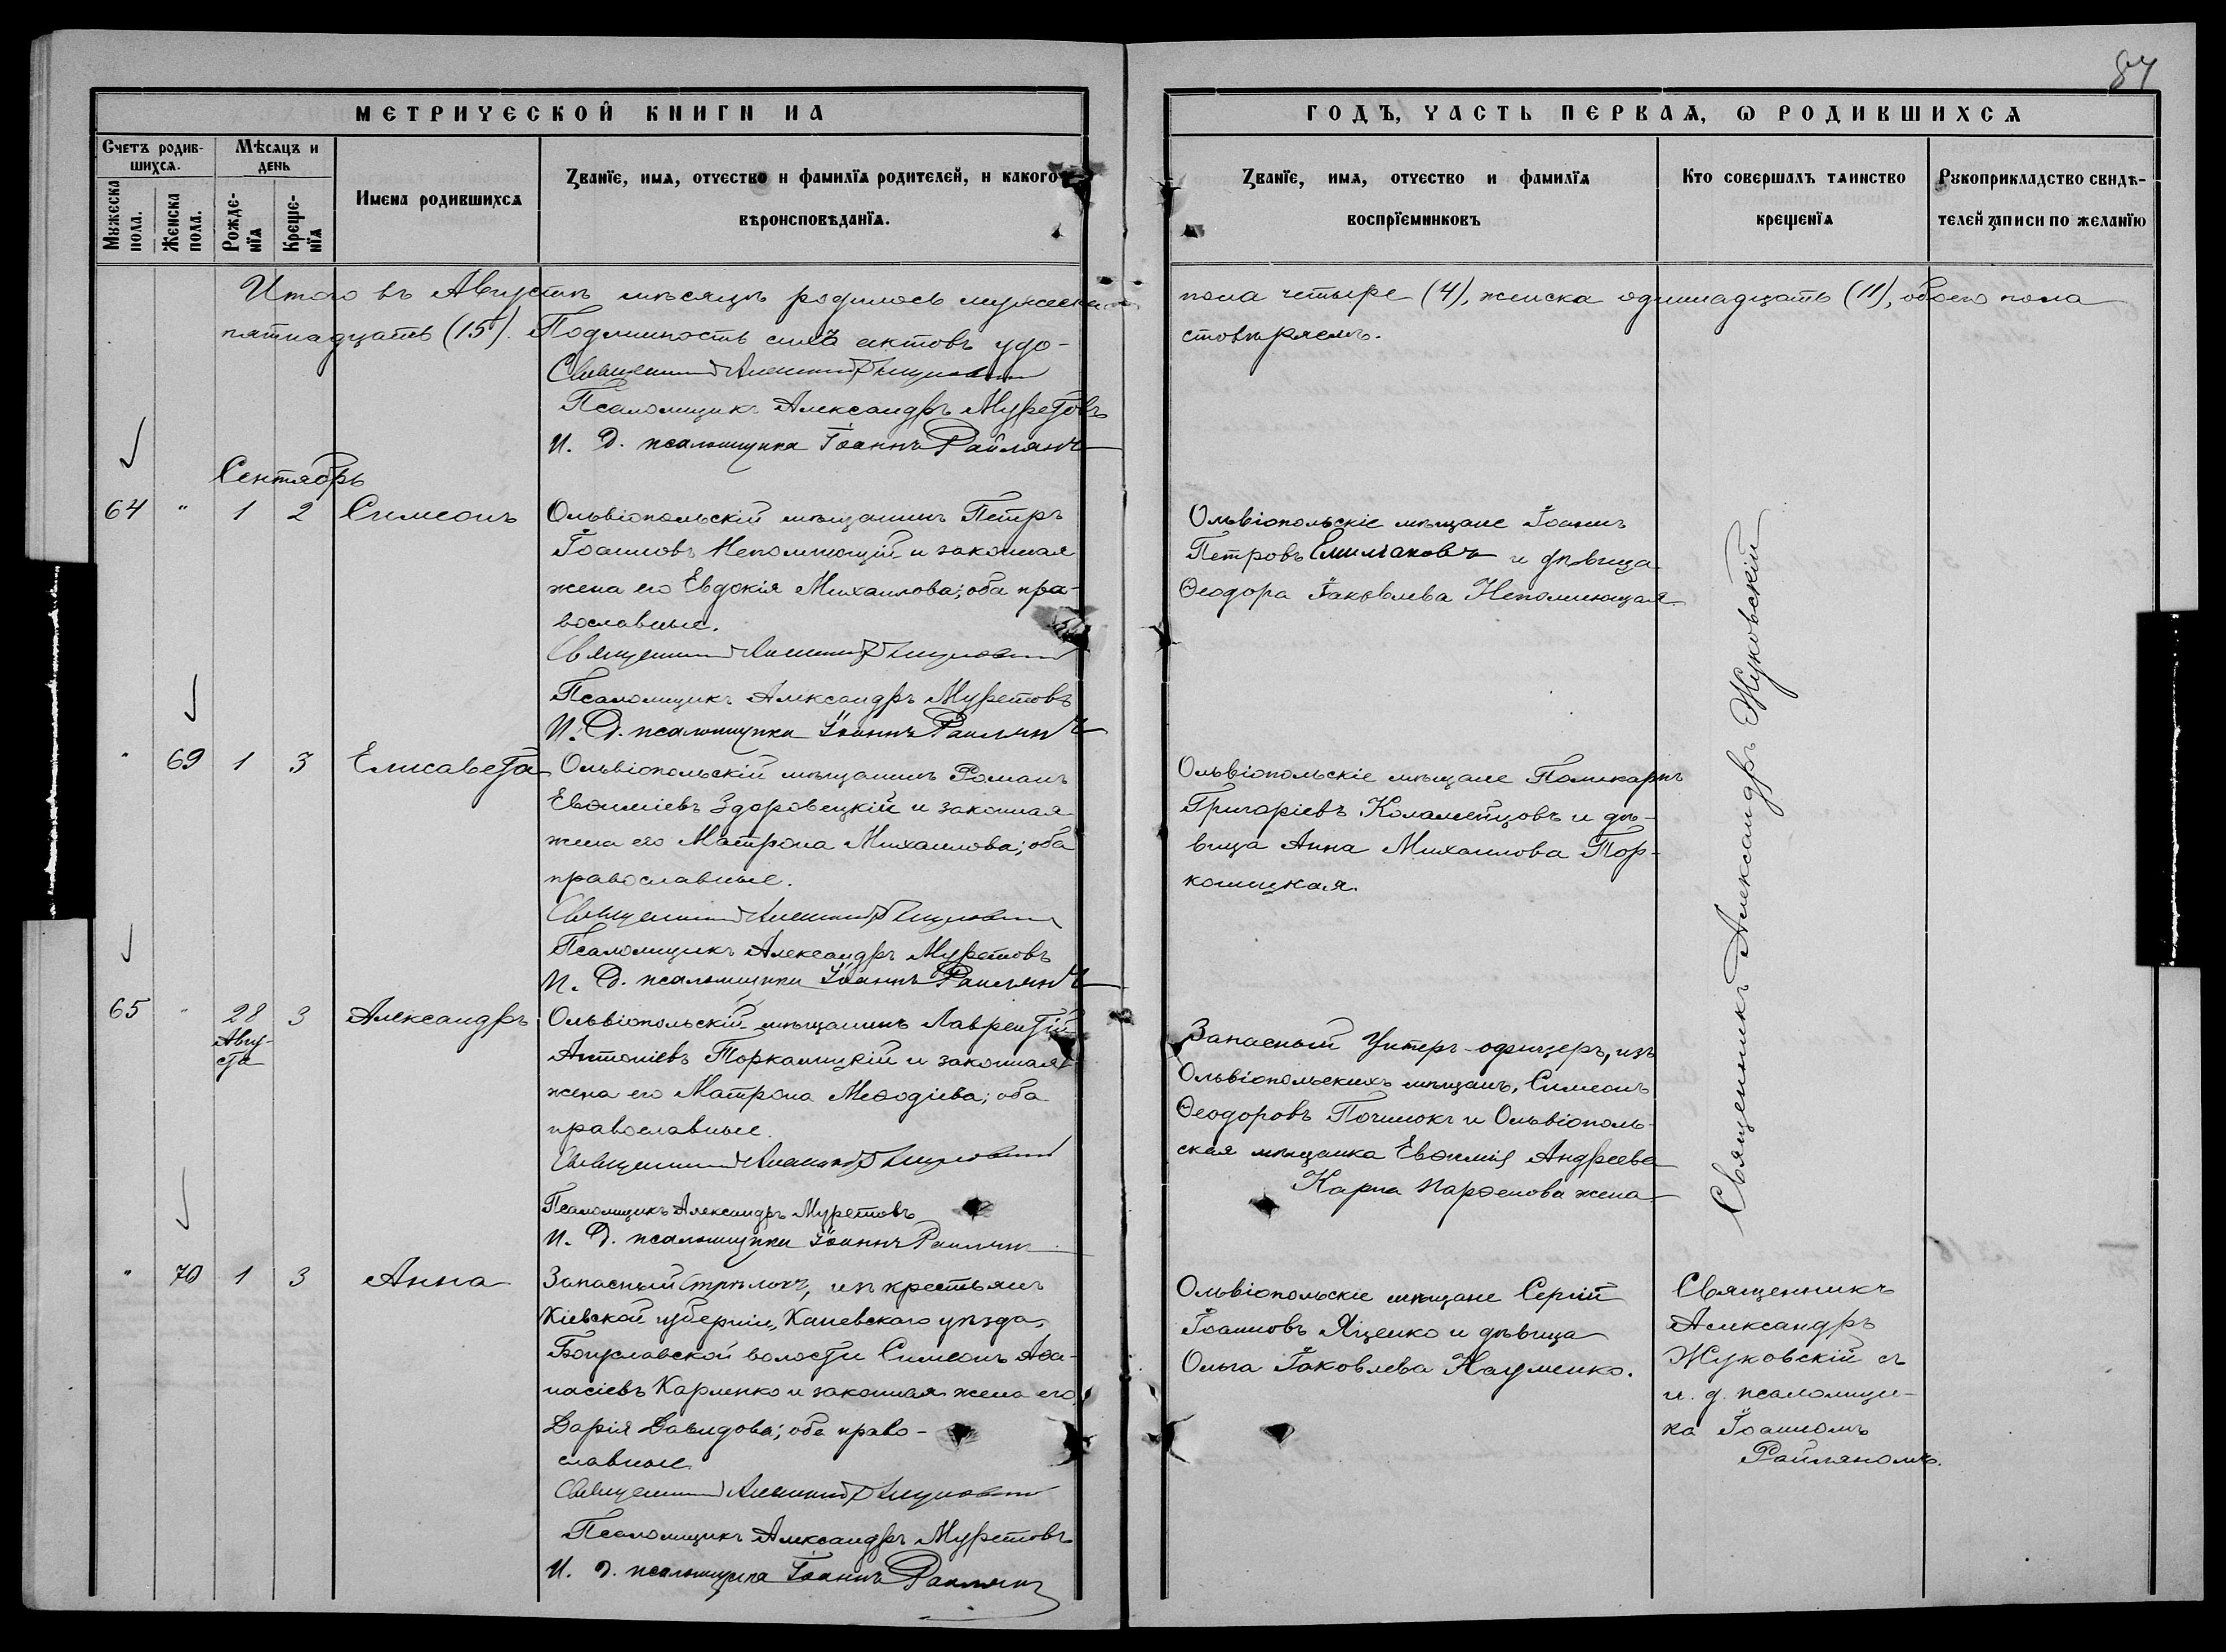 87
МЕТРИЧЕСКОЙ КНИГИ НА
ГОДЪ, ЧАСТЬ ПЕРВАЯ, Ѡ РОДИВШИХСЯ
Счетъ родив-
шихся.
Мѣсяцъ и
день
Мужеска
пола.
Женска
пола.
Рожде-
нія
Креще-
нія
Имена родившихся
Званіе, имя, отчество и фамилія родителей, и какого
вѣроисповѣданія.
Званіе, имя, отчество и фамилія
воспріемниковъ
Кто совершалъ таинство
крещенія
Рукоприкладство свидѣ-
телей записи по желанію
Итого въ Августѣ мѣсяцѣ родилось мужеска пола четыре (4), женска одиннадцать (11), обоего пола
пятнадцать (15). Подлинность сихъ актовъ удо-
стовѣряемъ.
Священникъ Александръ Жуковскій
Псаломщикъ Александръ Муретовъ
И. Д. псаломщика Іоаннъ Райлянъ
Сентябрь
64 " 1 2 Симеонъ
Ольвіопольскій мѣщанинъ Петръ
Іоанновъ Непомнющій и законная
жена его Евдокія Михаилова; оба пра-
вославные.
Священникъ Александръ Жуковскій
Псаломщикъ Александръ Муретовъ
И. Д. псаломщика Іоаннъ Райлянъ
Ольвіопольскіе мѣщане Іоаннъ
Петровъ Емильановъ и дѣвица
Ѳеодора Іаковлева Непомнющая
" 69 1 3 Елисавета
Ольвіопольскій мѣщанинъ Романъ
Евѳиміевъ Здоровецкій и законная
жена его Матрона Михаилова; оба
православные.
Священникъ Александръ Жуковскій
Псаломщикъ Александръ Муретовъ
И. Д. псаломщика Іоаннъ Райлянъ
Ольвіопольскіе мѣщане Поликарпъ
Григоріевъ Коламейцовъ и дѣ-
вица Анна Михаилова Тор-
коницкая.
65 " 28 3 Александръ
Авгу-
ста
Ольвіопольскій мѣщанинъ Лаврентій
Антоніевъ Торканицкій и законная
жена его Матрона Меѳодіева; оба
православные.
Священникъ Александръ Жуковскій
Псаломщикъ Александръ Муретовъ
И. Д. псаломщика Іоаннъ Райлянъ
Запасный Унтеръ-офицеръ, изъ
Ольвіопольскихъ мѣщанъ, Симеонъ
Ѳеодоровъ Починокъ и Ольвіополь-
ская мѣщанка Евѳимія Андреева
Карпа Парѳенова жена
Священникъ Александръ Жуковскій
" 70 1 3 Анна
Запасный стрѣлокъ, изъ крестьянъ
Кіевской губерніи, Каневскаго уѣзда,
Богуславской волости Симеонъ Аѳа-
насіевъ Карпенко и законная жена его
Дарія Давидова; оба право-
славные
Священникъ Александръ Жуковскій
Псаломщикъ Александръ Муретовъ
И. д. псаломщика Іоаннъ Райлянъ
Ольвіопольскіе мѣщане Сергій
Іоанновъ Яценко и дѣвица
Ольга Іаковлева Науменко.
Священникъ
Александръ
Жуковскій съ
и. д. псаломщи-
ка Іоанномъ
Райляномъ.